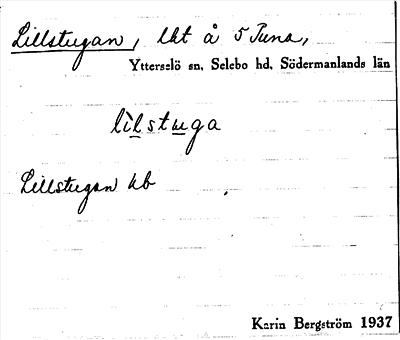 Lillstugan, lht å 5 Tuna,
Ytterselö sn, Selebo hd, Södermanlands län
lìlstuga
Lillstugan hb
Karin Bergström 1937